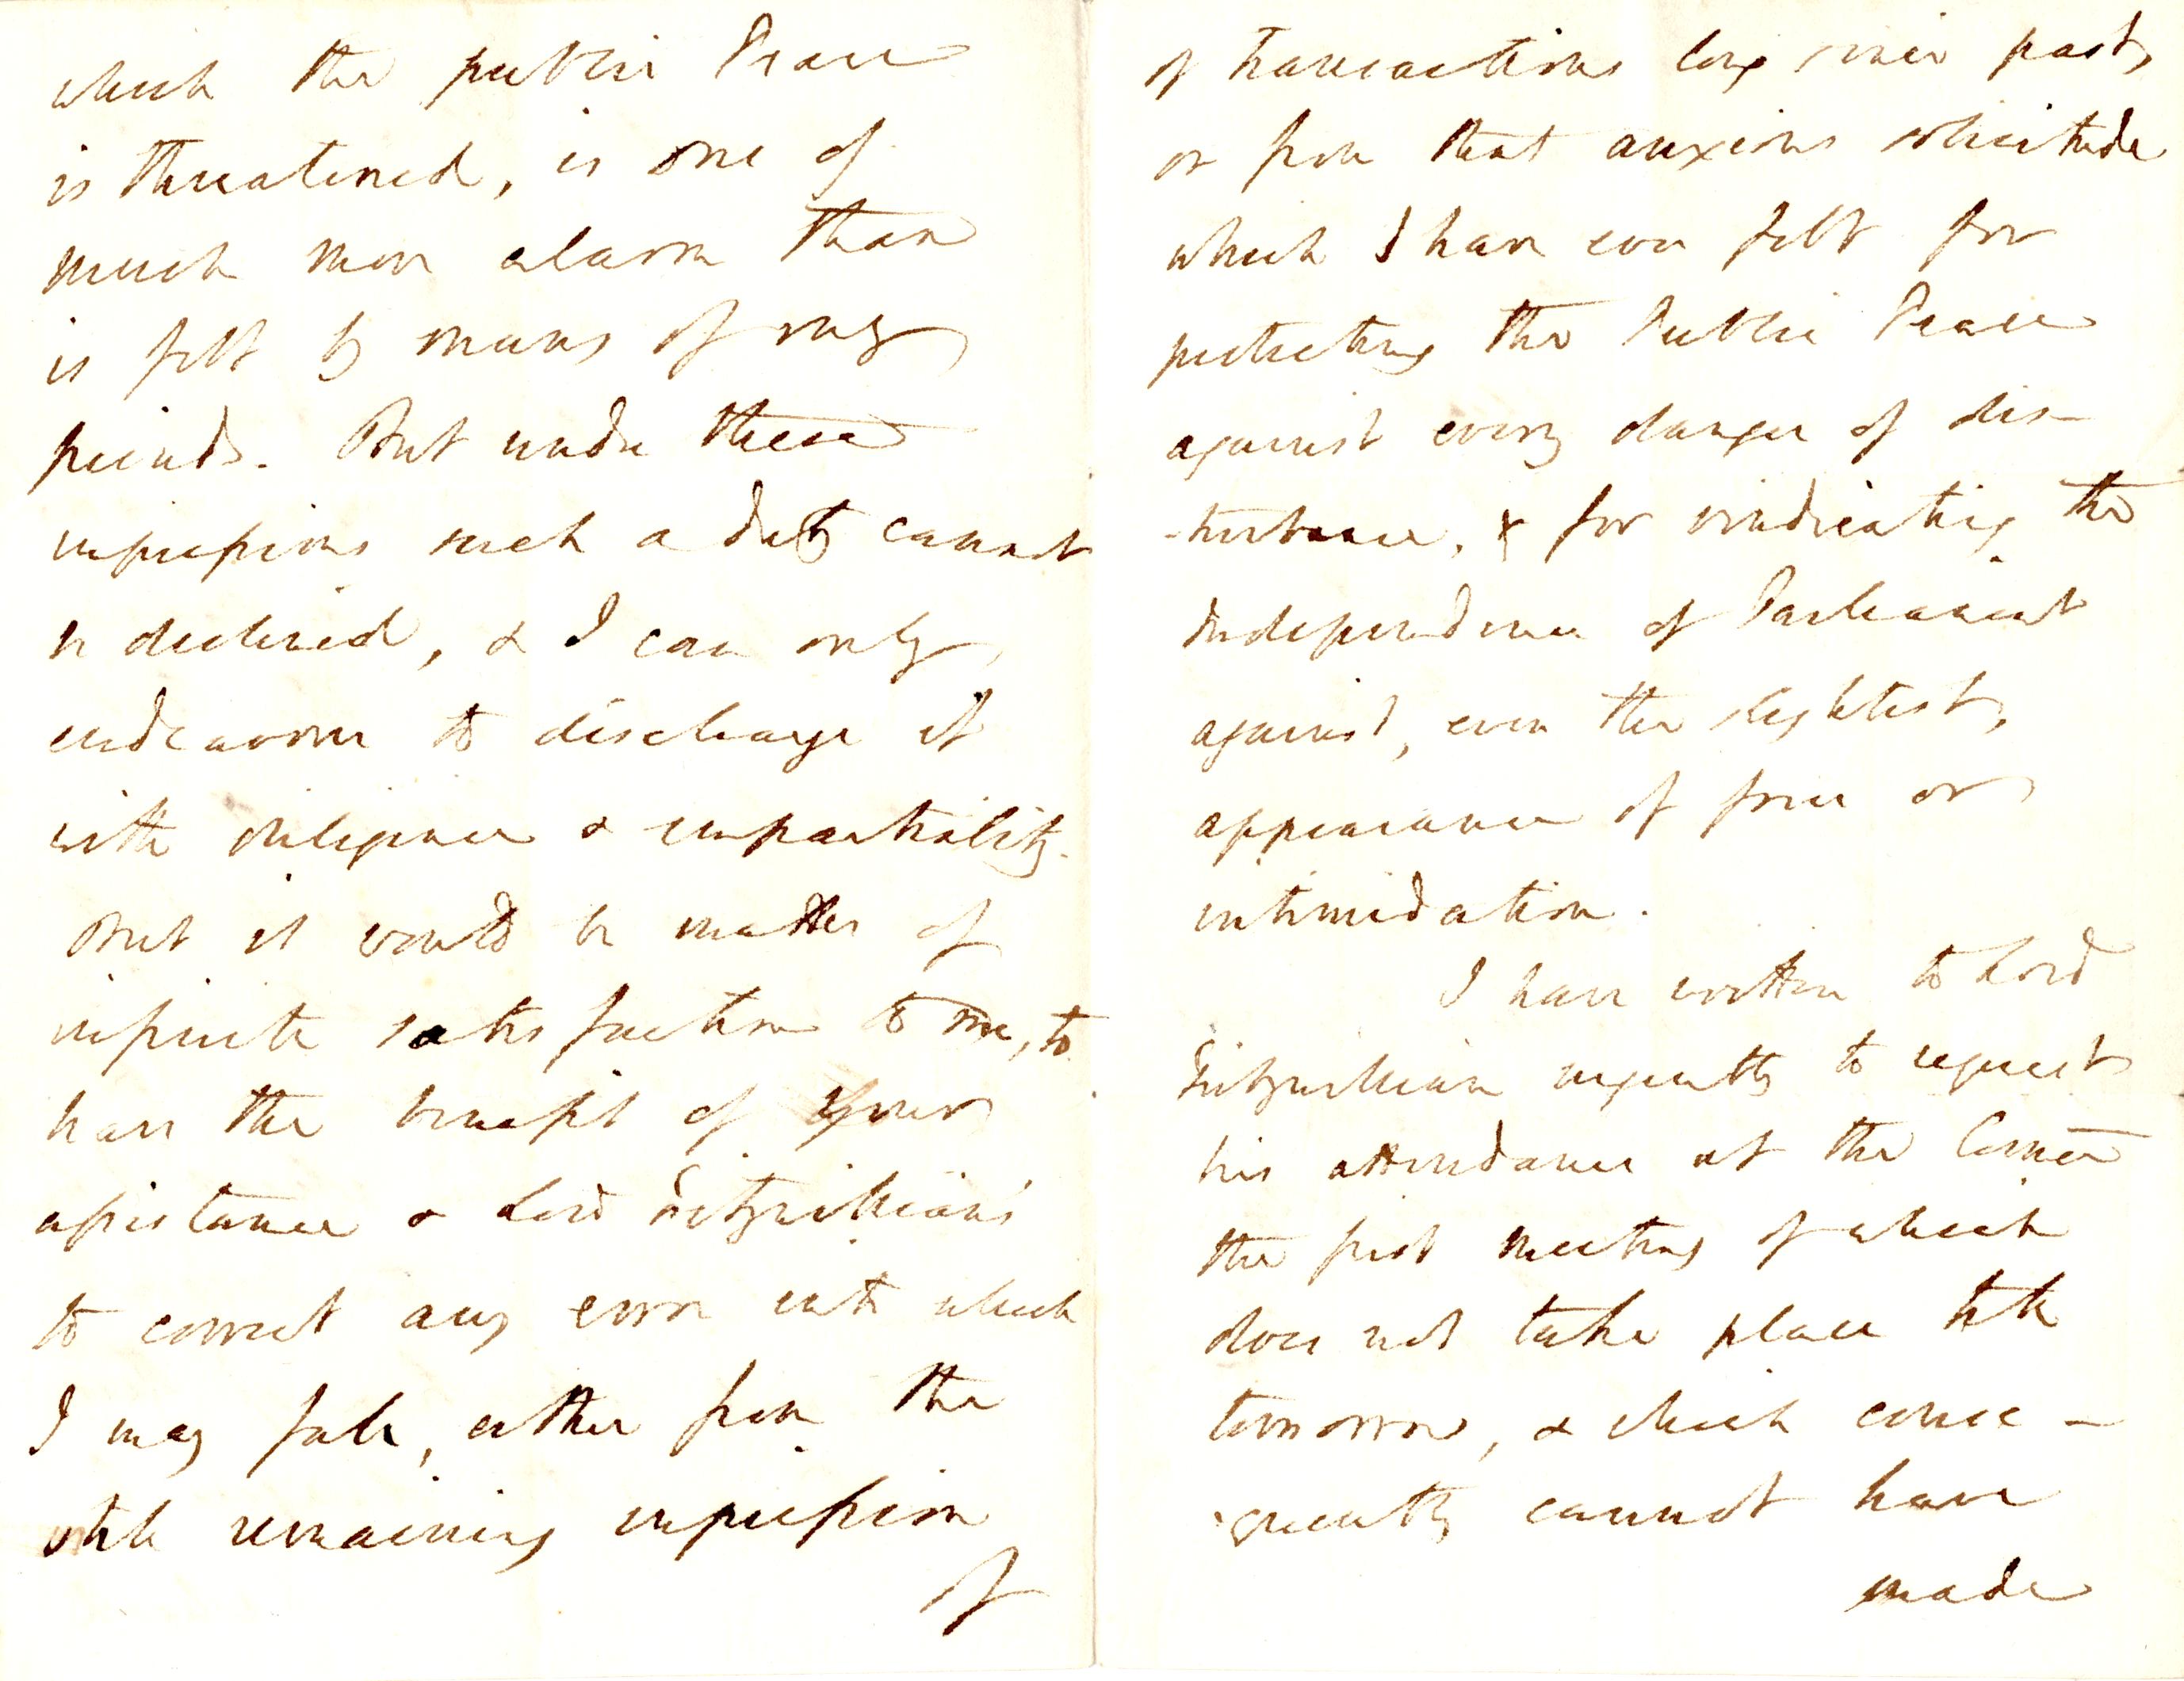 which the public Peace
is threatened, is one of
much more alarm than
is felt by many of my
friends. But under these
impressions such a duty cannot
be declined, & I can only
endeavour to discharge it
with diligence & impartiality.
But it would be matter of
infinite satisfaction to me, to
have the benefit of your
assistance & Lord Fitzwilliam's
to correct any error into which
I may fall, either from the
still remaining impression
of
of transactions long since past,
or from that anxious solicitude
which I have ever felt for
protecting the Public Peace
against every danger of dis-
-turbance, & for vindicating the
Independence of Parliament
against, even the slightest,
appearance of force or
intimidation.
I have written to Lord
Fitzwilliam urgently to request
his attendance at the Comee
the first meeting of which
does not take place till
tomorrow, & which conse-
-quently cannot have
made